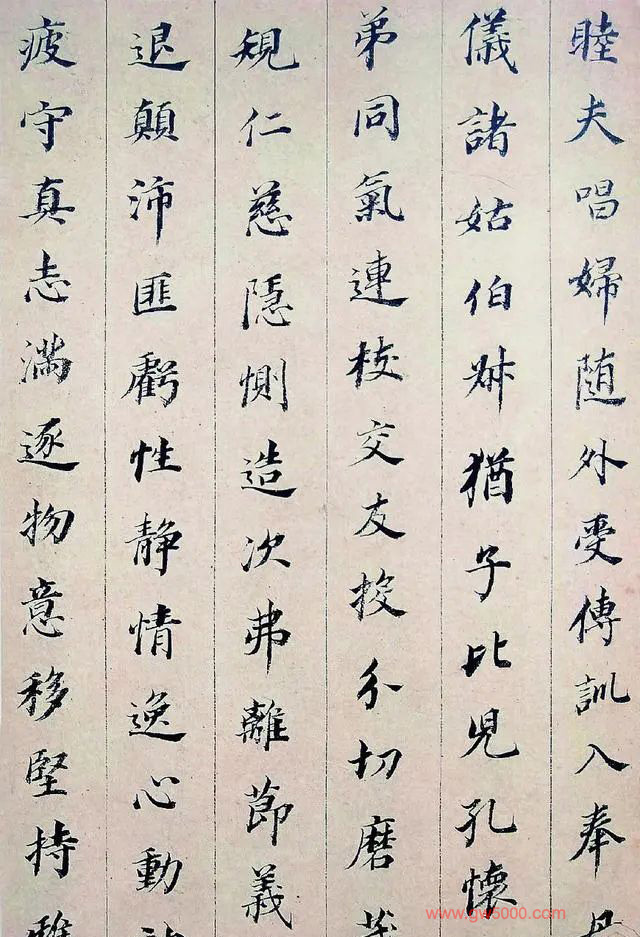 睦夫唱婦随外受傅訓入奉母
儀諸姑伯叔猶子比兒孔懷
弟同氣連枝交友投分切磨箴
規仁慈隱惻造次弗離節義
退顛沛匪虧性静情逸心動神
疲守真志滿逐物意移堅持雅
www.gw5000.com